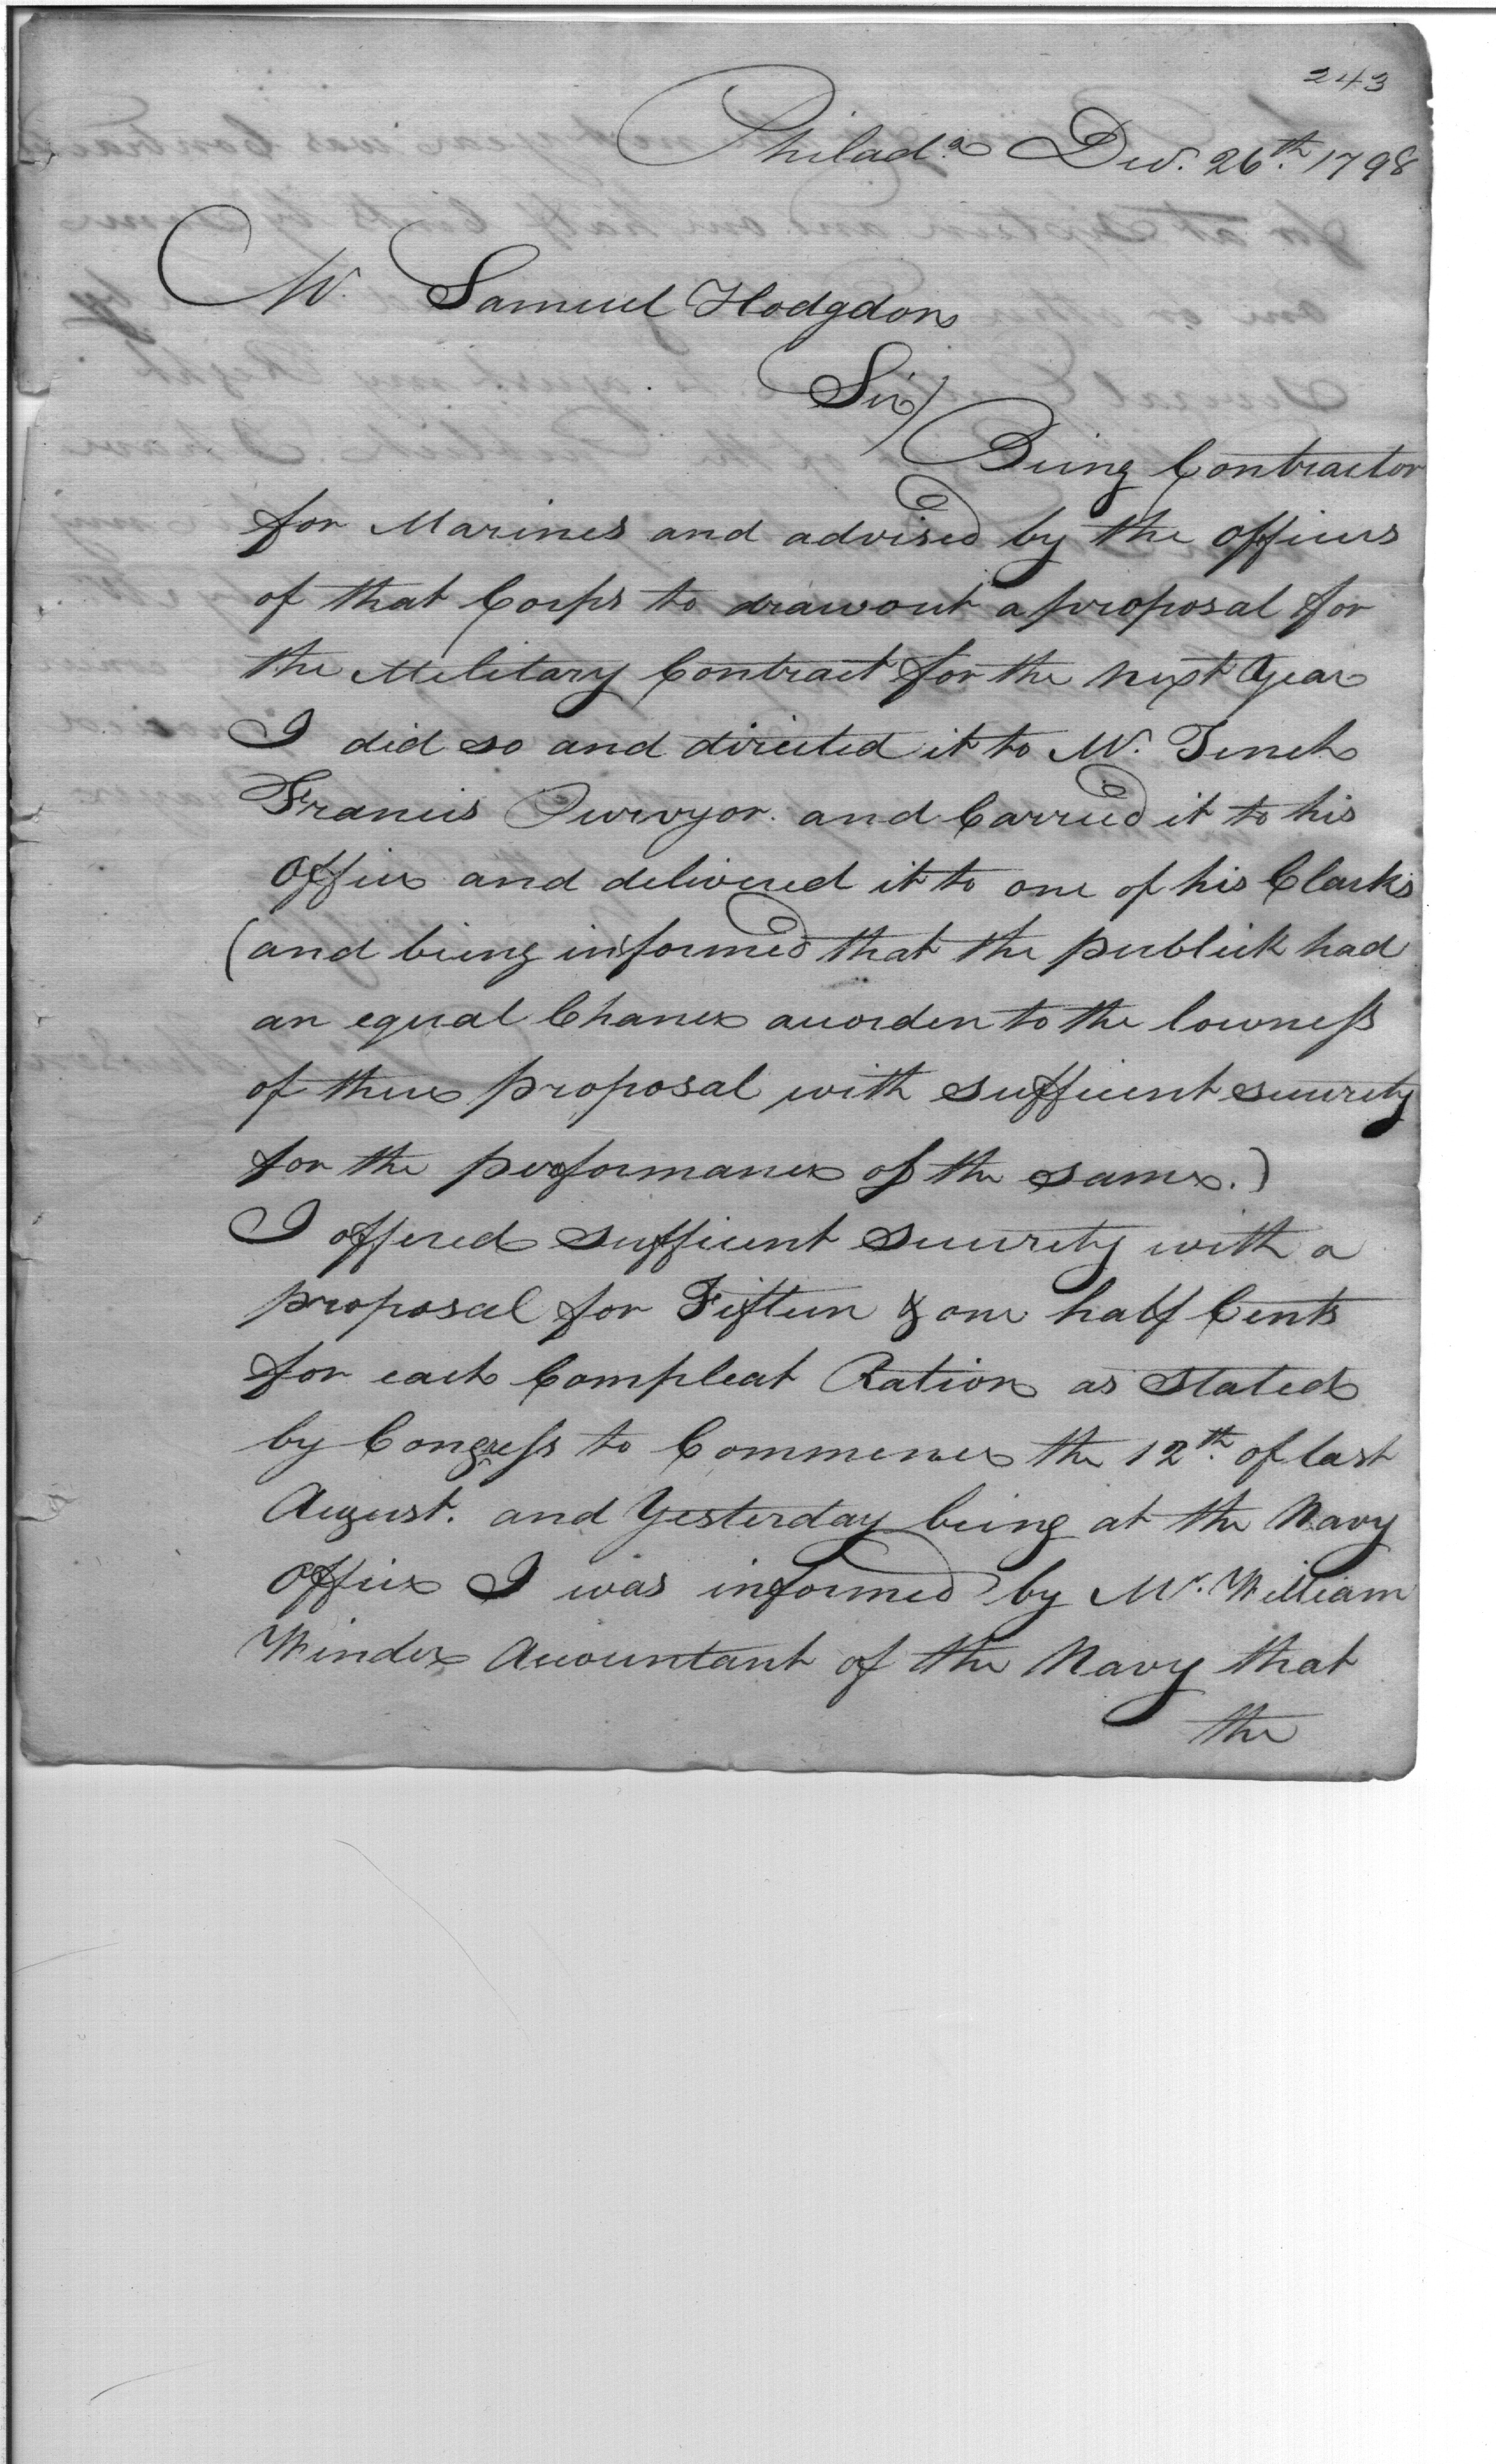 243
Philad.a Dec. 26th. 1798
Mr. Samuel Hodgdon
Sir/
Being Contractor
for Marines and advised by the officers
of that Corps to drawout a proposal for
the Militarey Contract for the next Year
I did so and directed it to Mr. Tench
Francis Purvyor. and Carried it to his
Office and delivered it to one of his Clarks
(and being informed that the publick had
an equal Chance accorden to the lowness
of there proposal with sufficent security
for the performance of the same.)
I offered sufficent security with a
proposal for Fifteen & one half Cents
for each Compleat Ration as stated
by Congress to Commence the 12th. of last
August. and Yesterday being at the Navy
Office I was informed by Mr. William
Winder Accountant of the Navy that
the